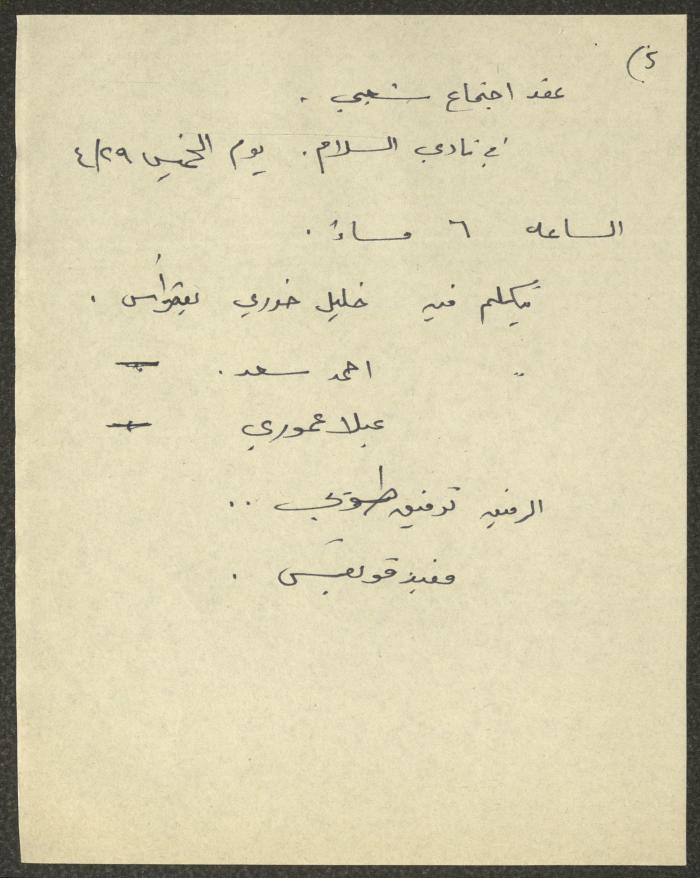 ٥)
عقد اجتماع شعبي .
في نادي السلام . يوم الخميس ٤/٢٩
الساعه ٦ مساءً .
يتكلم فيه خليل خوري .
" احمد سعد .
عبلا عموري
الرفيق توفيق طوبي ..
مفيد قويقس .